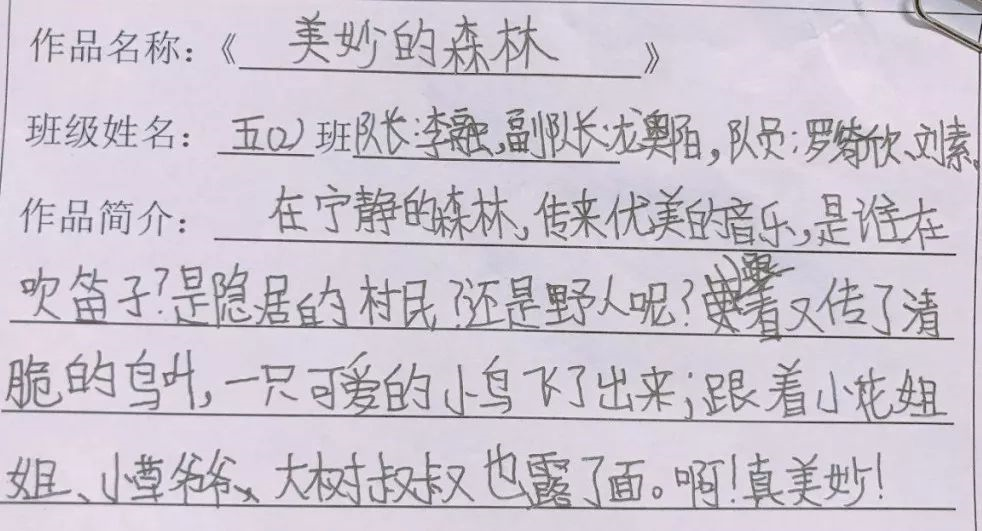 作品名称：《 美妙的森林 》
班级姓名：五(2)班队长:李融,副队长:龙奥阳,队员:罗欣、刘素、
作品简介：在宁静的森林,传来优美的音乐,是谁在
吹笛子?是隐居的村民?还是野人呢?跟着又传了清
脆的鸟叶,一只可爱的小鸟飞了出来;跟着小花姐
姐、小草爷爷、大树叔叔也露了面。啊!真美妙!